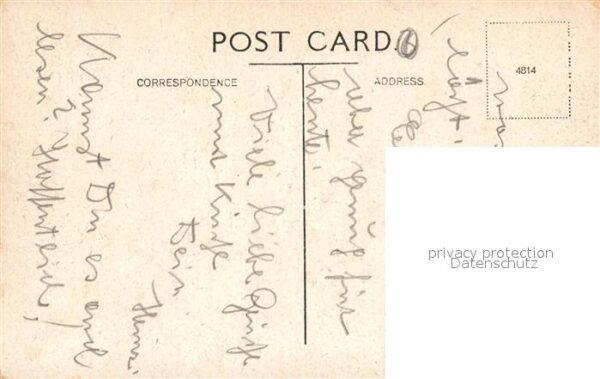 POST CARD.
CORRESPONDENCE
ADDRESS
4814
aber genug für
heute.
Viele liebe Grüße
und Küsse
Dein
Heinz.
Kannst Du es auch
lesen? Hoffentlich!
privacy protection
Datenschutz